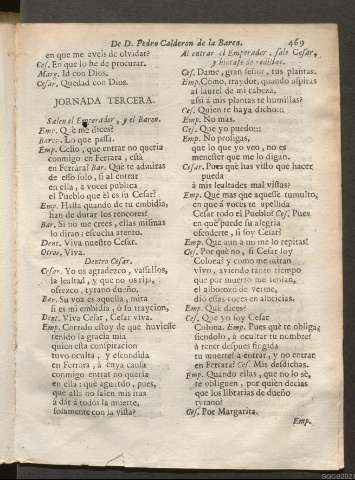 De D. Pedro Calderon de la Barca. 469
en que me aveis de olvidar?
Ces. En que lo he de procurar.
Marg. Id con Dios.
Cesar. Quedad con Dios.
JORNADA TERCERA.
Salen el Emperador, y el Baron.
Emp. Què me dices?
Baron. Lo que passa.
Emp. Celio, que entrar no queria
conmigo en Ferrara, està
en Ferrara? Bar. Què te admiras
de esso solo, si al entrar
en ella, a voces publica
el Pueblo que èl es su Cesar?
Emp. Hasta quando de tu embidia,
han de durar los rencores?
Bar. Si no me crees, ellas mismas
lo diràn: escucha atento.
Dent. Viva nuestro Cesar.
Otros. Viva.
Dentro Cesar.
Cesar. Yo os agradezco, vassallos,
la lealtad, y que no os rija,
ofrezco, tyrano dueño.
Bar. Su voz es aquella, mira
si es mi embidia, ò su traycion,
Dent. Viva Cesar, Cesar viva.
Emp. Corrido estoy de que huviesse
tenido la gracia mia
quien esta conspiracion
tuvo oculta, y escondida
en Ferrara, à cuya causa
conmigo entrar no queria
en ella: què aguardo, pues,
que allà no salen mis iras
à dàr à todos la muerte,
solamente con la vista?
Al entrar el Emperador, sale Cesar,
y hincase de rodillas.
Ces. Dame, gran señor, tus plantas.
Emp. Còmo, traydor, quando aspiras
al laurel de mi cabeza,
assi à mis plantas te humillas?
Ces. Quien te haya dicho:::
Emp. No mas.
Ces. Que yo puedo:::
Emp. No prosigas,
que lo que yo veo, no es
menester que me lo digan.
Cesar. Pues què has visto que hacer
pueda
à mis lealtades mal vistas?
Emp. Què mas que aquesse tumulto,
en que à voces te apellida
Cesar todo el Pueblo? Ces. Pues
en què puede su alegria
ofenderte, si soy Cesar?
Emp. Que aun à mi me lo repitas!
Ces. Por què no, si Cesar soy
Colona? y como me miran
vivo, aviendo tanto tiempo
que por muerto me tenian,
el alborozo de verme,
diò essas voces en albricias.
Emp. Què dices?
Ces. Que yo soy Cesar
Colona. Emp. Pues què te obliga,
siendolo, à ocultar tu nombre?
à tener despues fingida
tu muerte? à entrar, y no entrar
en Ferrara? Ces. Mis desdichas.
Emp. Quando ellas, que no lo sè,
te obliguen, por quièn decias
que los librarias de dueño
tyrano?
Ces. Por Margarita.
Emp.